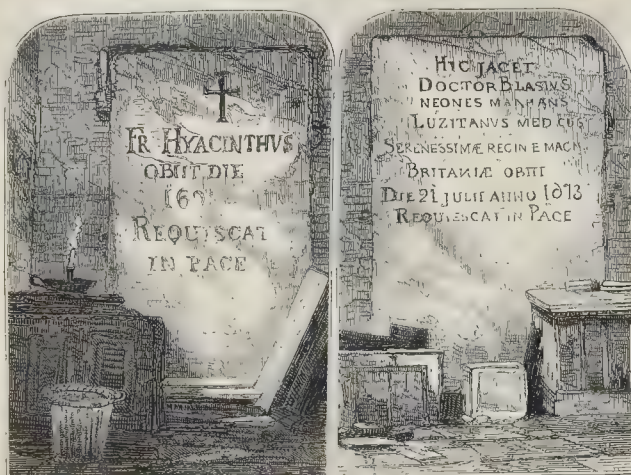 FR HYACINTHVS
OBIIT DIE
REQUISCAT
IN PACE
HIC JACET
DOCTOR BLASIVS
NEONES MANHANS
LUZITANVS MEDICUS
SERENESSIMÆ REGINE MAGN
BRITANIÆ OBIIT
DIE 21 JULII ANNO 1673
REQUIESCAT IN PACE